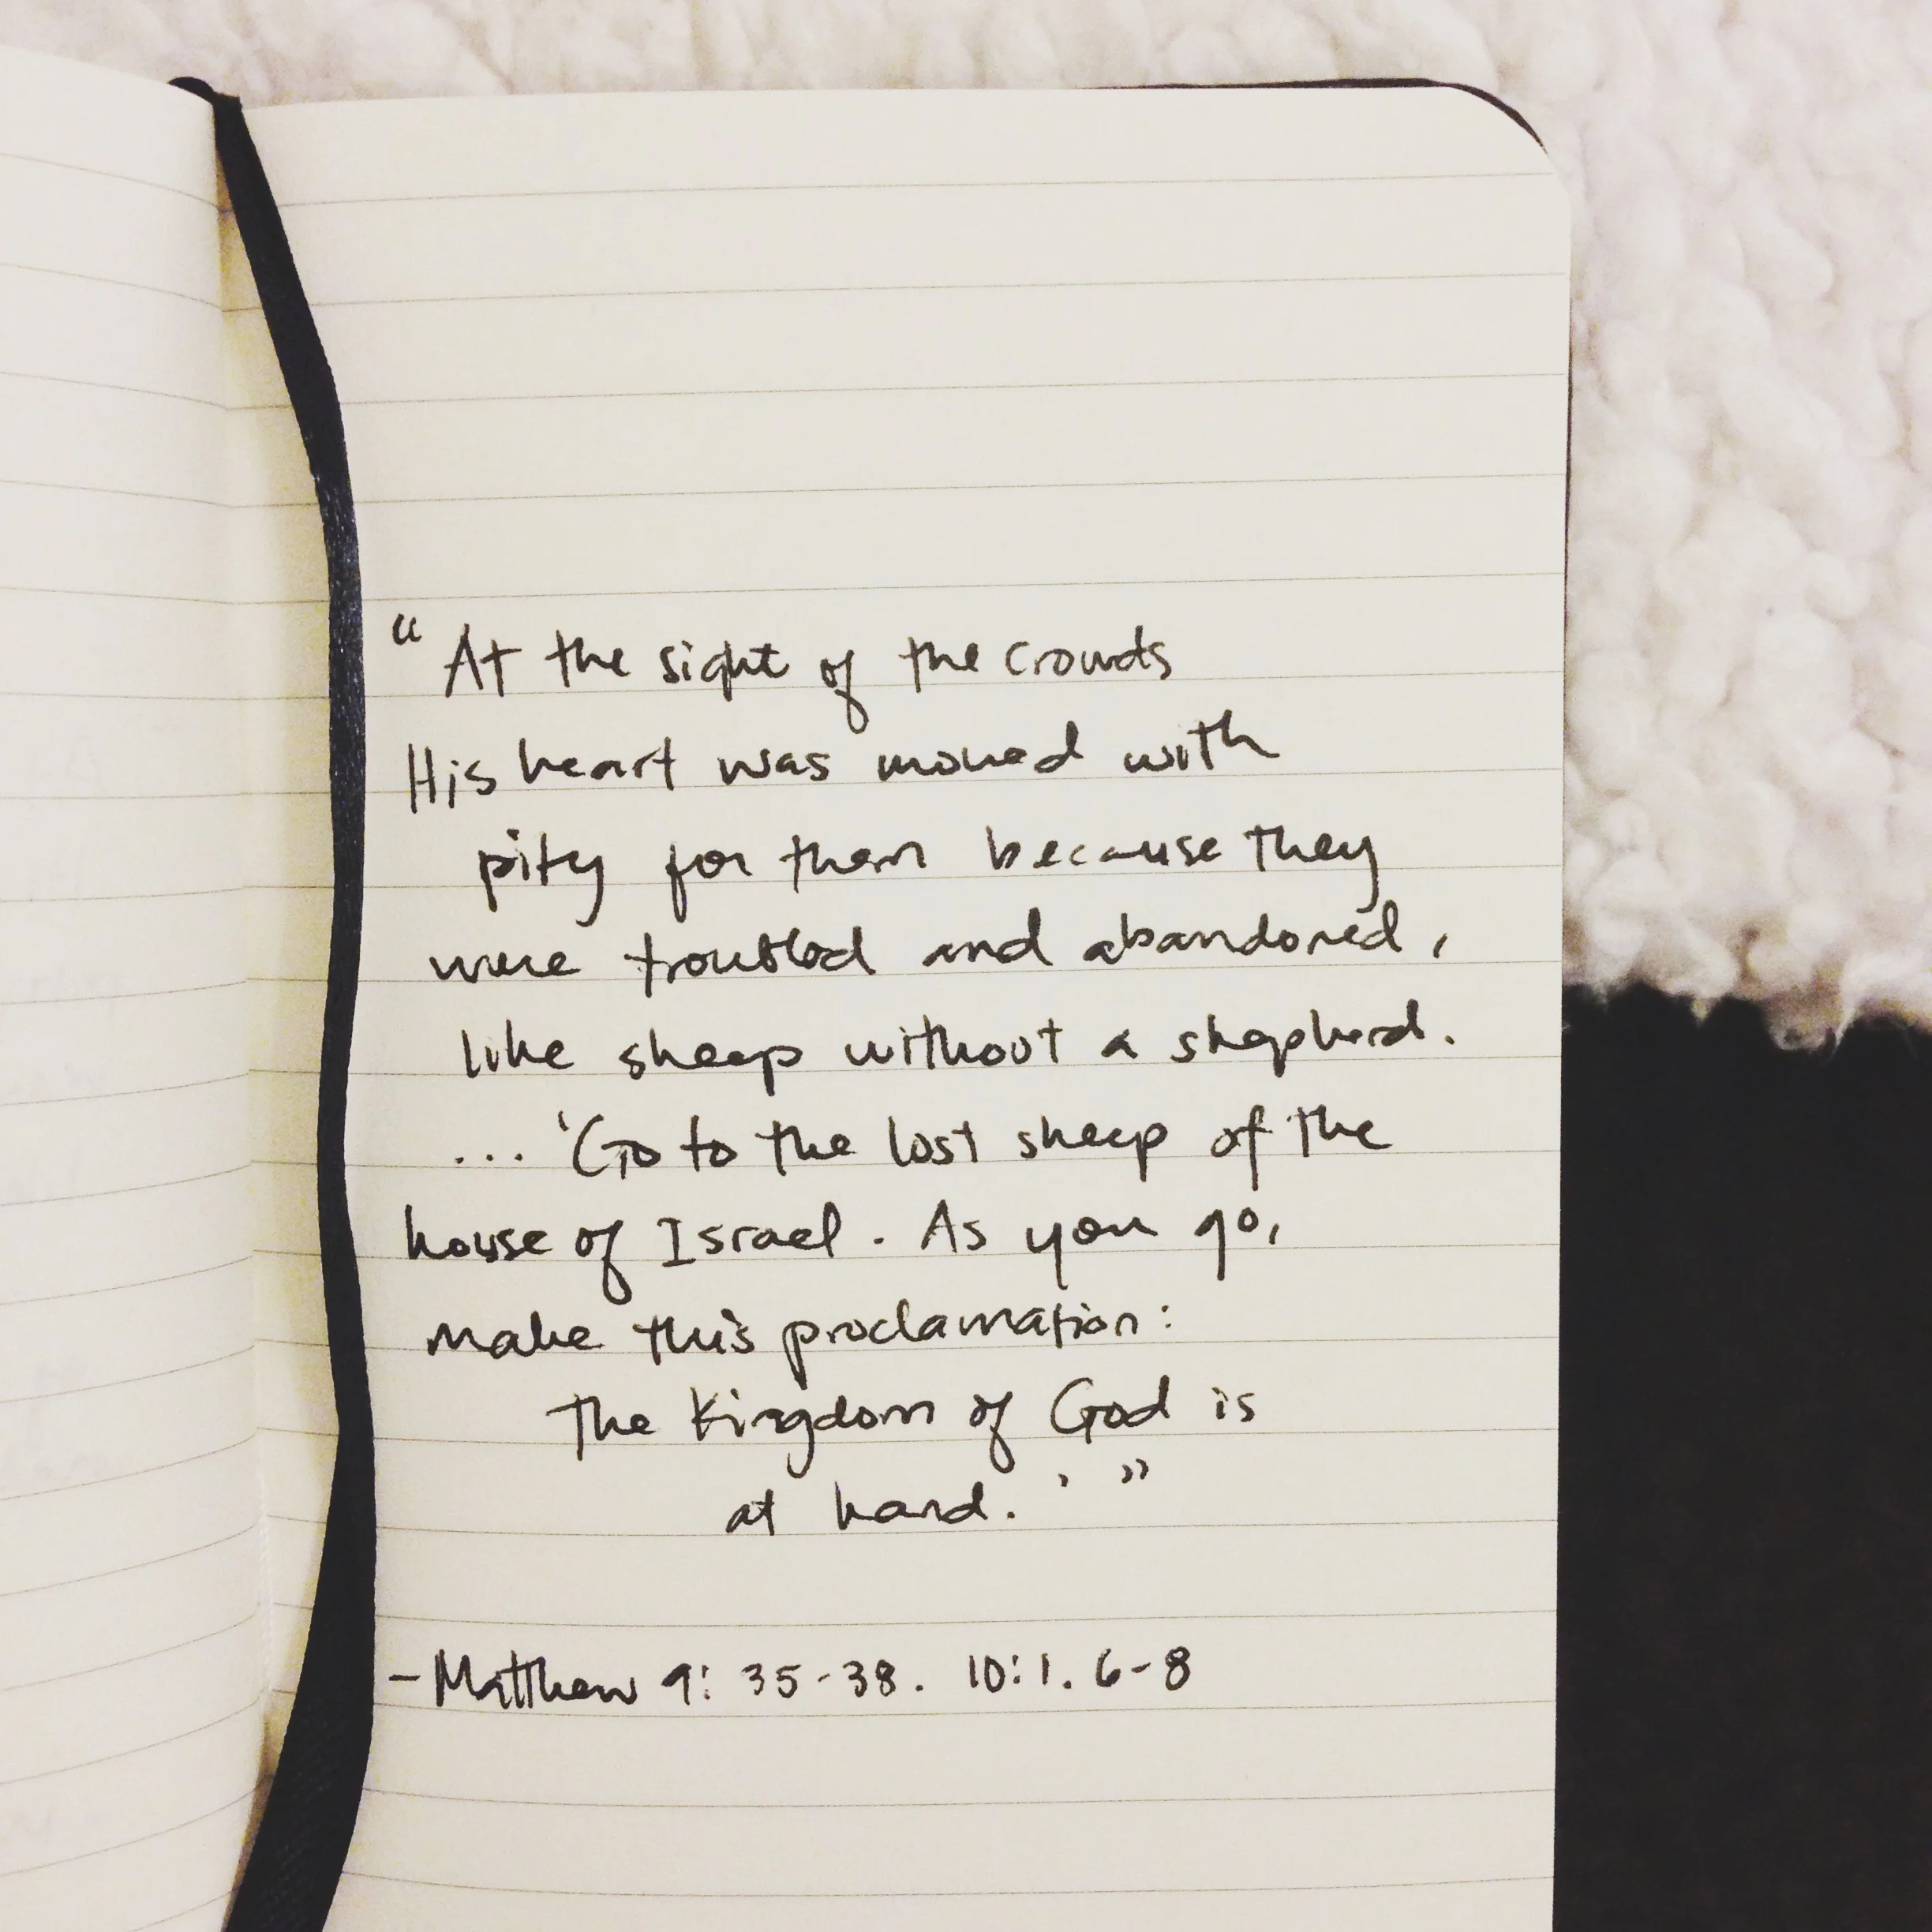 “At the sight of the crowds
His heart was moved with
pity for them because they
were troubled and abandoned,
like sheep without a shepherd.
... 'Go to the lost sheep of the
house of Israel. As you go,
make this proclamation:
The Kingdom of God is
at hand.' ”
- Matthew 9: 35-38. 10:1. 6-8